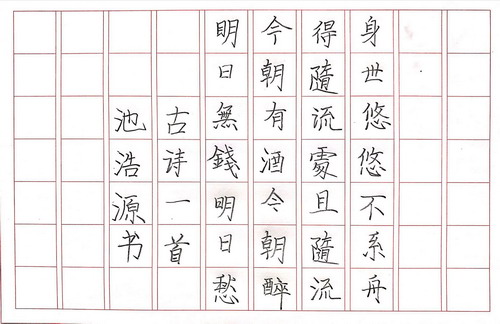 身世悠悠不系舟
得隨流處且隨流
今朝有酒今朝醉
明日無錢明日愁
古诗一首
池浩源书